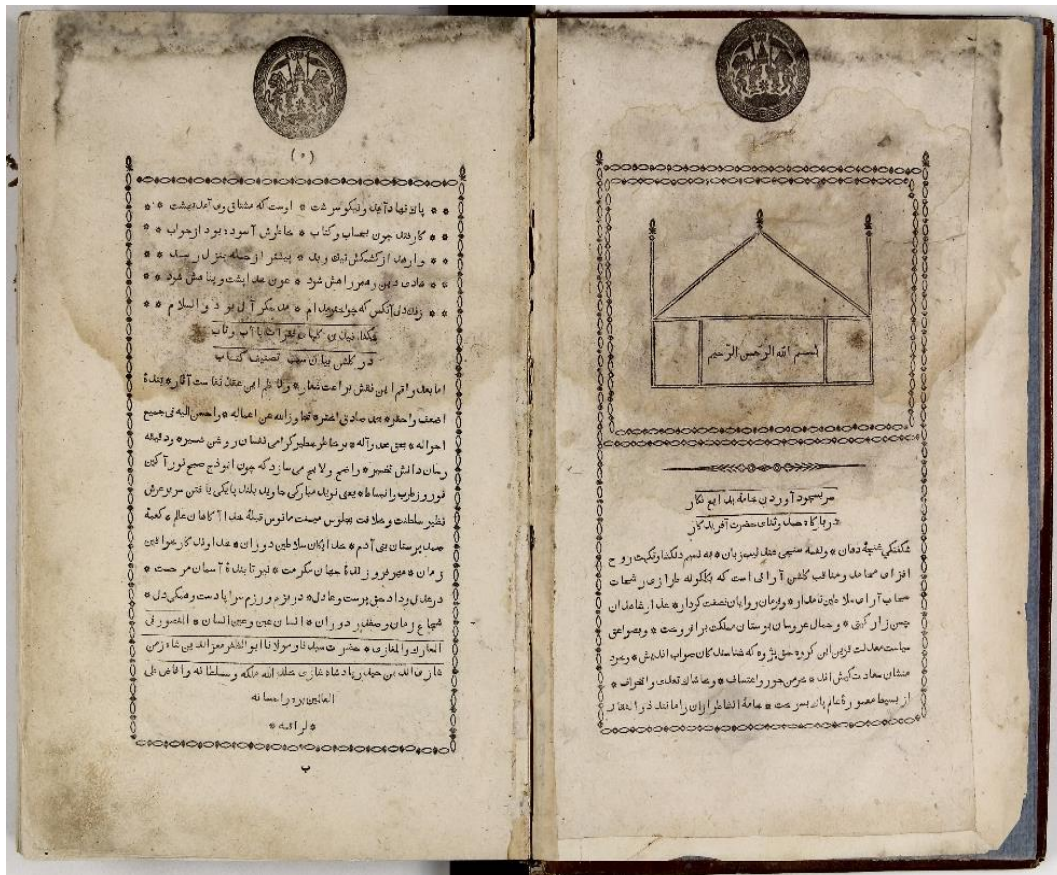 بسم الله الرحمن الرحيم
سر بسجود آوردن خامهٔ بدایع نگار
در بارگاه حمد و ثنای حضرت آفریدگار
شگفتگی غنچهٔ دهان * و نغمه سنجی عندلیب زبان * به نسیم دلکشا و نکهت روح
افزای محامد و مناقب گلشن آرائی است که بگلگونه طرازی رشحات
سحاب آرای سلاطین نامدار * و فرمان روایان نصفت کردار * عذار شاهدان
چمن زار گیتی * و جمال عروسان بوستان مملکت بر افروخت * و بصواعق
سیاست معدلت قرین این گروه حق پژوه که شناسندگان صواب اندیش * و خرد
منشان سعادت کیش اند * خرمن جور و اعتساف * و خاشاك تعدی و انحراف *
از بسیط معمورهٔ عالم پاك بسوخت * خامهٔ الفاظ طرازان را مانند ذو الفقار
(۵)
* * پاك نهاد آمد و نیکو سرشت * اوست که مشتاق وی آمد بهشت * *
* * کار فتد چون بحساب و کتاب * خاطرش آسوده بود از جواب * *
* * وارهد از کشمکش نیك و بد * پیشتر از جمله بمنزل رسد * *
* * هادی دین رهبر راهش شود * عون هدایت و پناهش شود * *
* * زنده دل آنکس که چو اختر مدام * مدحگر آل بود والسلام * *
در گلشن بیان سبب تصنیف کتاب
اما بعد راقم این نقش براعت شعار * و ناظم این عقد نفاست آثار * بندهٔ
اضعف و احقر * محمد صادق اختر * تجاوز الله عن اعماله * و احسن الیه فی جمیع
احواله * بحق محمد و آله * بر خاطر عطیر گرامی نفسان روشن ضمیر * و دقیقه
رسان دانش تخمیر * واضح و لایح می سازد که چون انموذج صبح نور آگین
نوروز طرب و انبساط * یعنی نوید مبارکی جاوید بلند پایگی یافتن سریر عرش
نظیر سلطنت و خلافت بجلوس میمنت مانوس قبلهٔ خدا آگاهان عالم * کعبهٔ
صمد پرستان بنی آدم * خدایگان سلاطین دوران * خداوندگار خواقین
زمان * مهر فروزندهٔ جهان مکرمت * نیر تابندهٔ آسمان مرحمت *
در عدل و داد حق پرست و عادل * در بزم و رزم سراپا دست و همگی دل *
شجاع زمان و صفدر دوران * انسان عین و عین انسان * المنصور فی
المعارك و المغازی * حضرت سیدنا و مولانا ابو الظفر معز الدین شاه زمن
غازی الدین حیدر پادشاه غازی خلد الله ملکه و سلطانه و افاض علی
العالمین بره و احسانه
* لراقمه *
ب